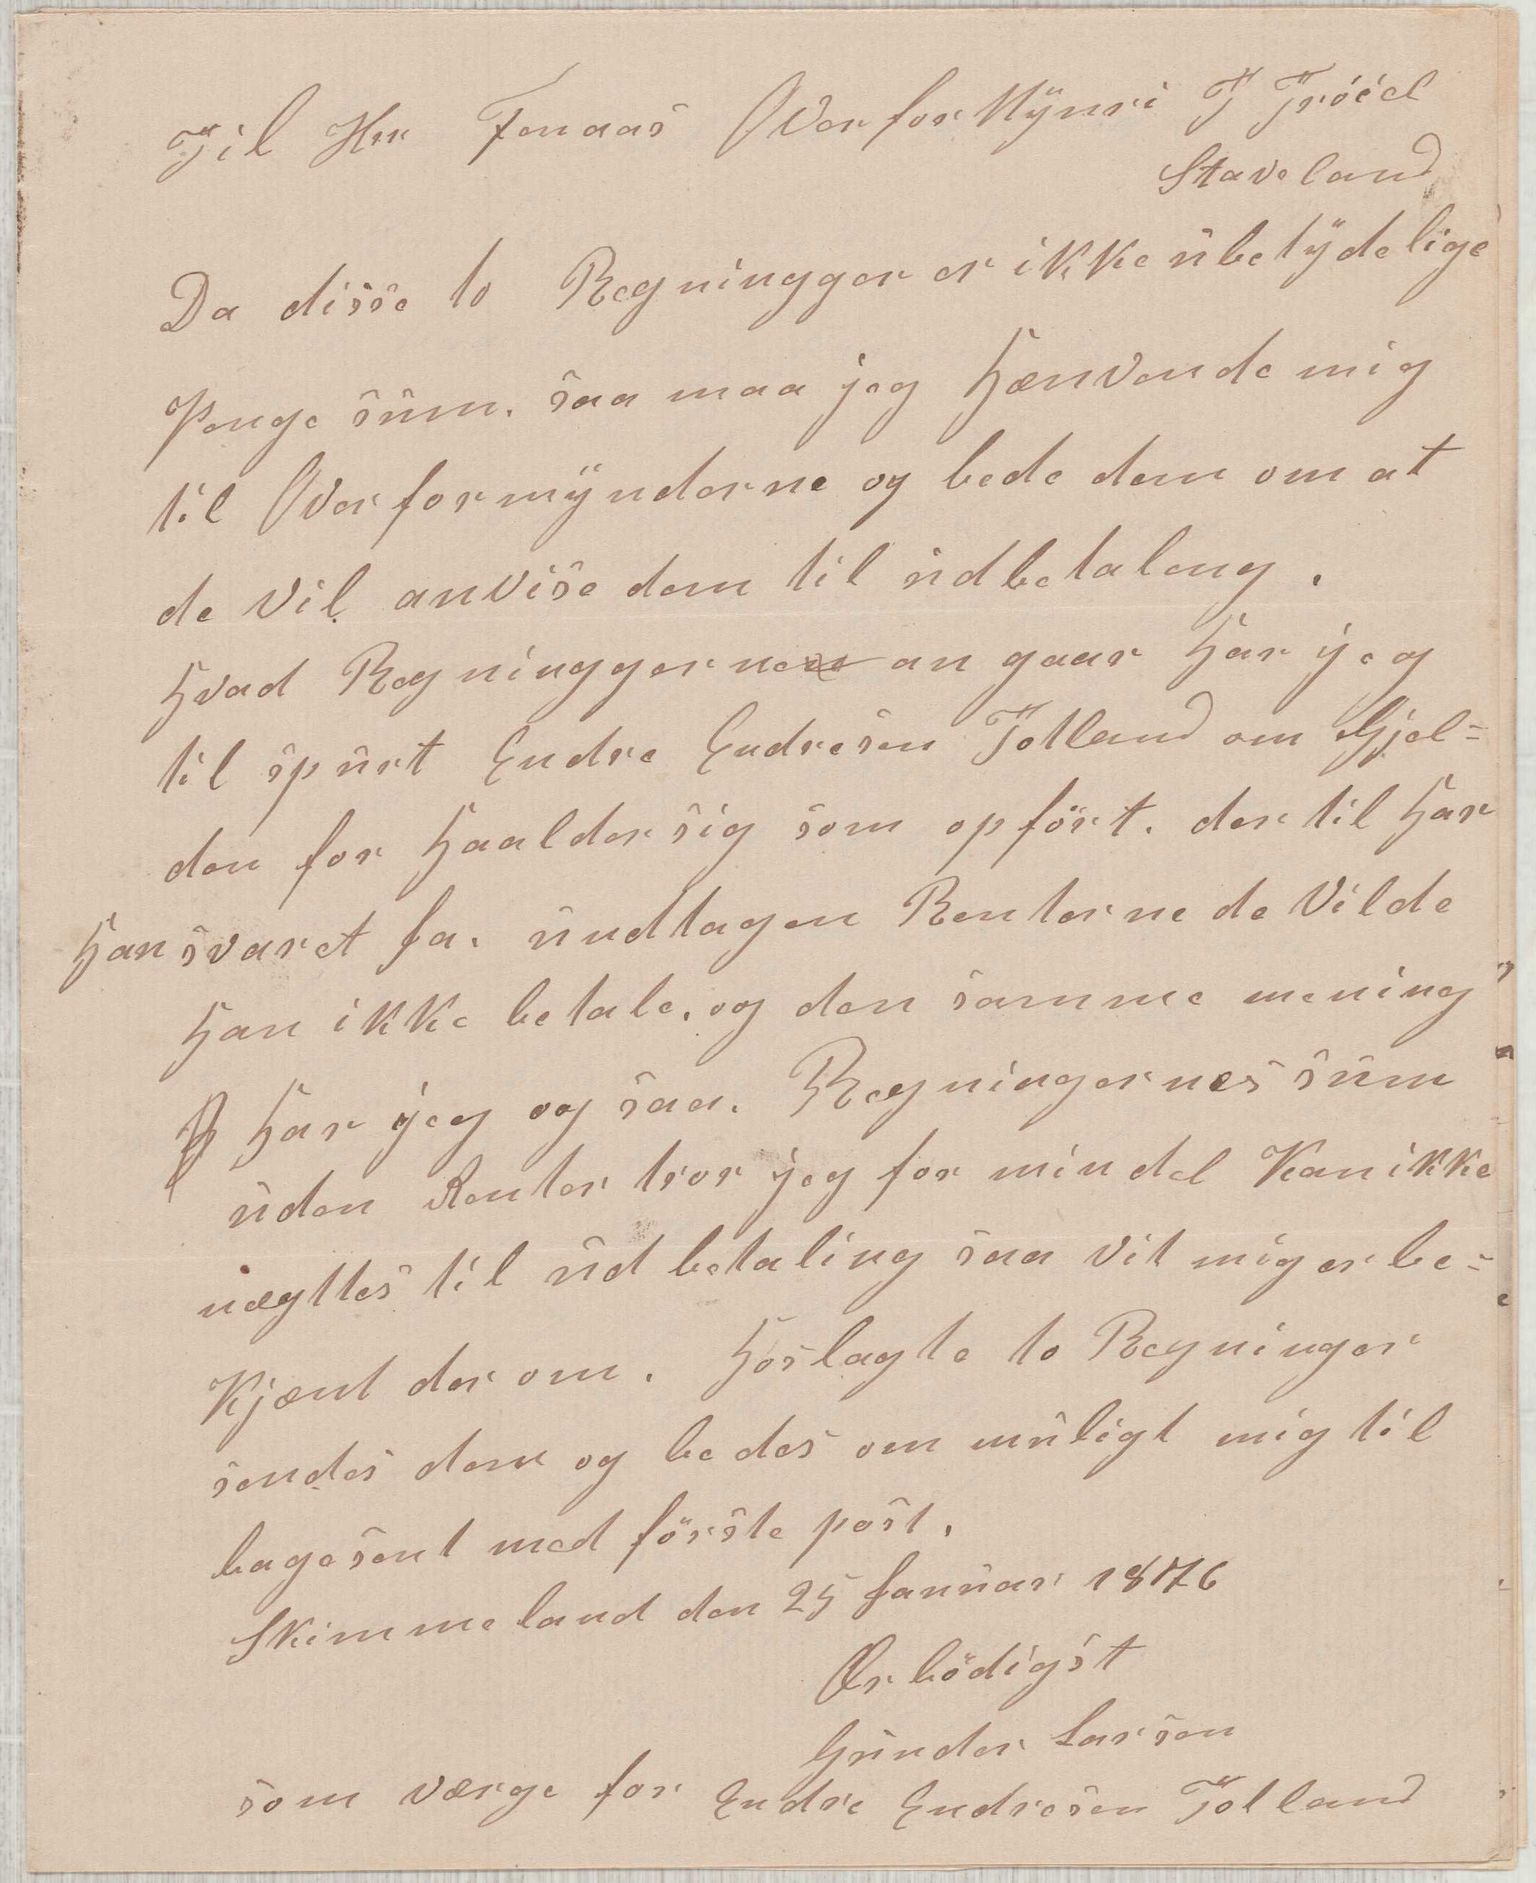 Til Hrr Fenaas Overformÿnri T Tröiel
Staveland
Da disse to Regningger er ikke ubetÿdelige
Penge sum. saa maa jeg Hænvende mig
til Overformÿnderne og bede dem om at
de vil anvise dem til udbetaleng.
Hvad Regninggerne an gaar Har jeg
til spurt Endre Endresen Totland om Gjel=
den for Haalder sig som opfört. der til Har
Han svaret Ja. undtagen Renterne de vilde
Han ikke betale. og den samme mening
Har jeg og saa. Regningernes sum
uden Renter tror jeg for min del Kan ikke
nægttes til udbetaling saa vit mig er be=
Kjænt der om. Hoslagte to Regninger
sendes dem og bedes om muligt mig til
bagesent med förste post.
Skimmeland den 25 Januar 1876
Ærbödigst
Gunder Larsen
som værge for Endre Endresen Totland